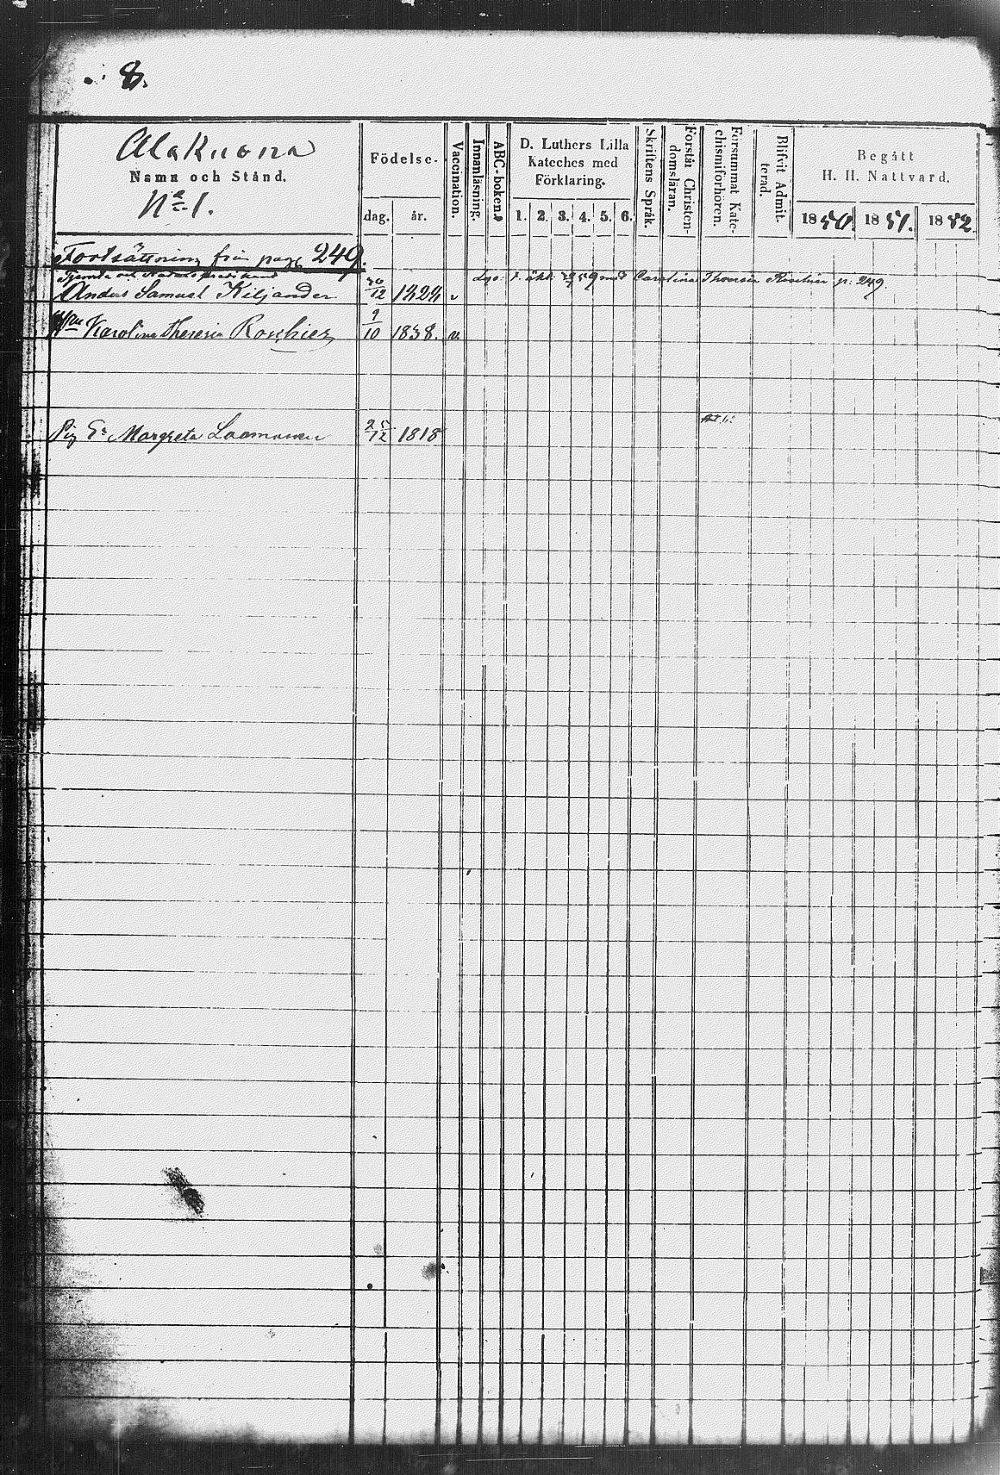 8.
Alakuona
Namn och Stånd.
No 1.
Födelse-
dag. år.
Vaccination.
Innanläsning.
ABC-boken.
D. Luthers Lilla
Kateches med
Förklaring.
1. 2. 3. 4. 5. 6.
Skriftens Språk.
Förstår Christen-
domsläran.
Försummat Kate-
chismiförhören.
Blifvit Admit-
terad.
Begått
H. H. Nattvard.
1850. 1851. 1852.
Fortsättning från pag. 249.
Anders Samuel Kiljander 30/12 1824 v
Lys. t. äkt. 59 med Carolina Theresia p. 249
Karolina Theresia Roschier 9/10 1838. v.
Pig. Margreta Laamanen 25/12 1818